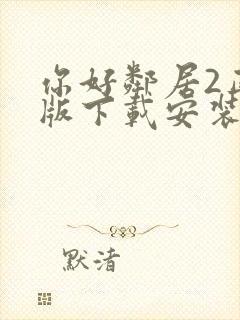 你好鄰居2
版下載安裝
默渚